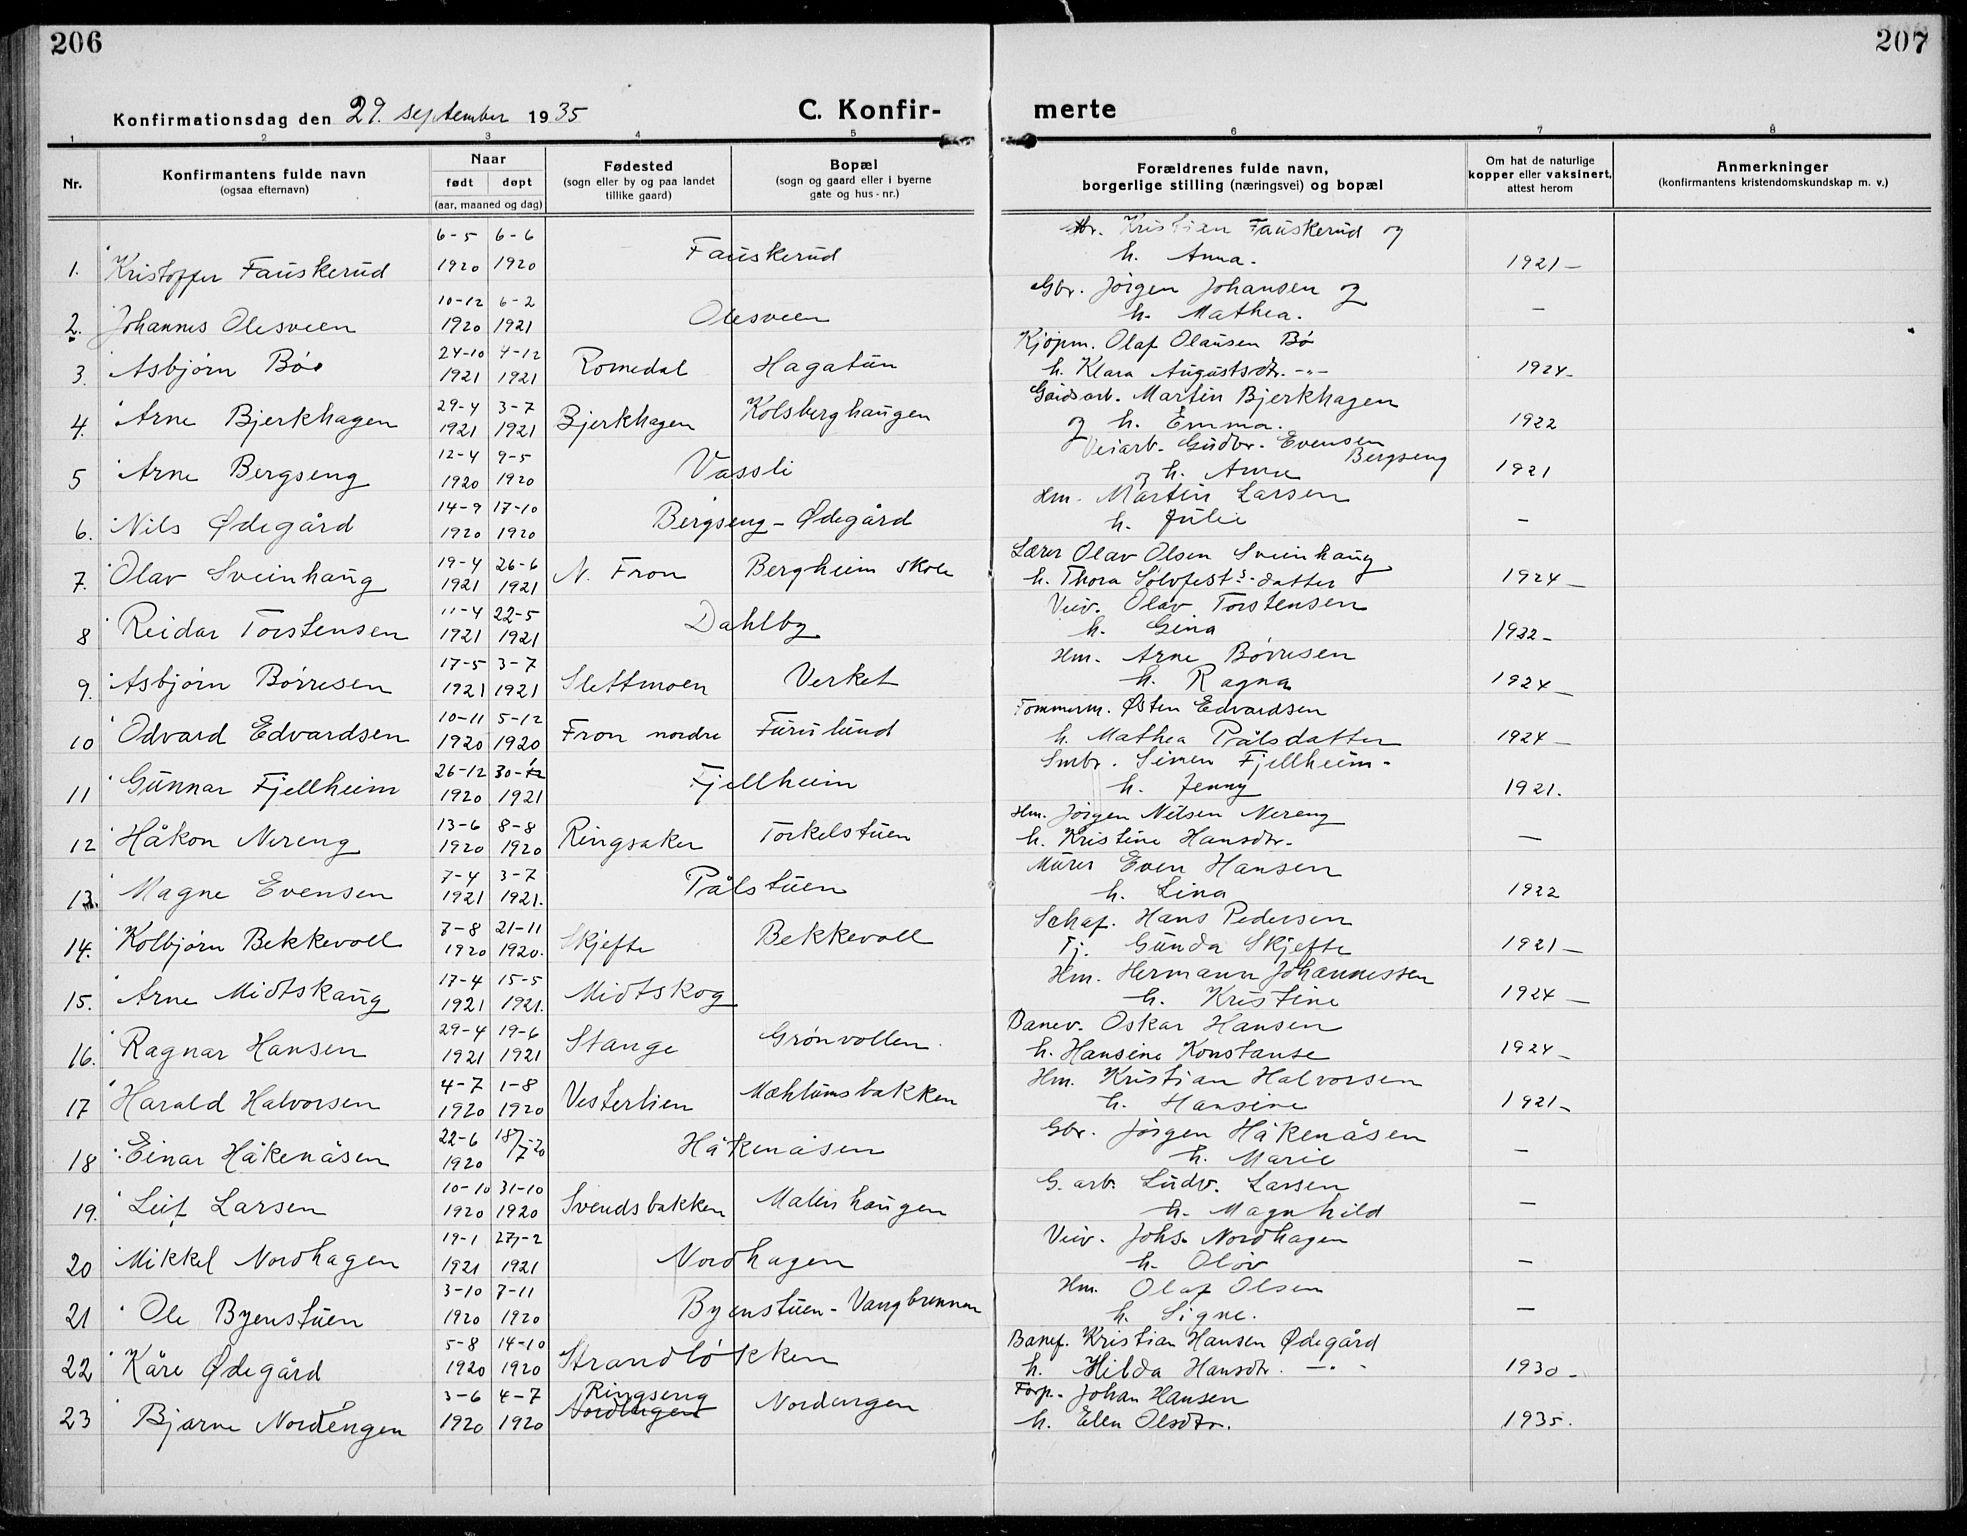 206
207
Konfirmationsdag den 29. september 1935
C. Konfir-
merte
1 2 3 4 5 6 7 8
Nr.
Konfirmantens fulde navn
(ogsaa efternavn)
Naar
født døpt
(aar, maaned og dag)
Fødested
(sogn eller by og paa landet
tillike gaard)
Bopæl
(sogn og gaard eller i byerne
gate og hus-nr.)
Forældrenes fulde navn,
borgerlige stilling (næringsvei) og bopæl
Om hat de naturlige
kopper eller vaksinert,
attest herom
Anmerkninger
(konfirmantens kristendomskundskap m. v.)
1. Kristoffer Fauskerud 6-5 1920 6-6 1920 Fauskerud Kristian Fauskerud og
h. Anna. 1921 —
2. Johannes Olesveen 10-12 1920 6-2 1921 Olesveen Gbr. Jörgen Johansen og
h. Mathea. —
3. Asbjörn Bö 24-10 1921 4-12 1921 Romedal Hagatun Kjöpm. Olaf Olausen Bö
h. Klara Augustsdtr. -"- 1924 -
4. Arne Bjerkhagen 29-4 1921 3-7 1921 Bjerkhagen Kolsberghaugen Gårdsarb. Martin Bjerkhagen
og h. Emma. 1922
5 Arne Bergseng 12-4 1920 9-5 1920 Vassli Veiarb. Gudbr. Evensen Bergseng
og h. Anna 1921
6. Nils Ødegård 14-9 1920 17-10 1920 Bergseng - Ødegård Hm. Martin Larsen
h. Julie —
7. Olav Sveinhaug 19-4 1921 26-6 1921 N. Fron Bergheim skole Lærer Olav Olsen Sveinhaug
h. Thora Sölvfests-datter 1924 —
8 Reidar Torstensen 11-4 1921 22-5 1921 Dahlby Veiv. Olav Torstensen
h. Gina 1922 -
9. Asbjörn Börresen 17-5 1921 3-7 1921 Slettmoen Verket Hm. Arne Börresen
h. Ragna 1924 —
10 Odvard Edvardsen 10-11 1920 5-12 1920 Fron nordre Furulund Tømmerm. Østen Edvardsen
h. Mathea Pålsdatter 1924 —
11 Gunnar Fjellheim 26-12 1920 30-1 1921 Fjellheim Smbr. Simen Fjellheim -
h. Jenny 1921.
12 Håkon Nereng 13-6 1920 8-8 1920 Ringsaker Torkelstuen Hm. Jörgen Nilsen Nereng
h. Kristine Hansdtr. —
13. Magne Evensen 7-4 1921 3-7 1921. Pålstuen Murer Even Hansen
h. Lina 1922
14. Kolbjörn Bekkevoll 7-8 1920 21-11 1920. Skjefte Bekkevoll Hans Pedersen
Tj. Gunda Skjefte 1921 —
15. Arne Midtskaug 17-4 1921 15-5 1921. Midtskog Hm. Hermann Johannessen
h. Kristine 1924 —
16. Ragnar Hansen 29-4 1921 19-6 1921 Stange Grönvollen. Banev. Oskar Hansen
h. Hansine Konstanse 1924 -
17 Harald Halvorsen 4-7 1920 1-8 1920 Vesterlien Mæhlumsbakken Hm. Kristian Halvorsen
h. Hansine 1921 -
18 Einar Håkenåsen 22-6 1920 18/7-20 Håkenåsen Gbr. Jörgen Håkenåsen
h. Marie —
19. Leif Larsen 10-10 1920 31-10 1920 Svendsbakken Malinhaugen G.arb. Ludv. Larsen
h. Magnhild —
20 Mikkel Nordhagen 19-1 1921 27-2 1921 Nordhagen Veiv. Johs. Nordhagen
h. Olöv —
21 Ole Byenstuen 3-10 1920 7-11 1920 Byenstuen - Vangbrennen Hm. Olaf Olsen
h. Signe. —
22 Kåre Ødegård 5-8 1920 14-10 1920 Strandlökken Banef. Kristian Hansen Ødegård
h. Hilda Hansdtr. -"- 1930 -
23 Bjarne Nordengen 3-6 1920 4-7 1920 Ringseng Nordengen Forp. Johan Hansen
h. Elen Olsdtr. 1935.